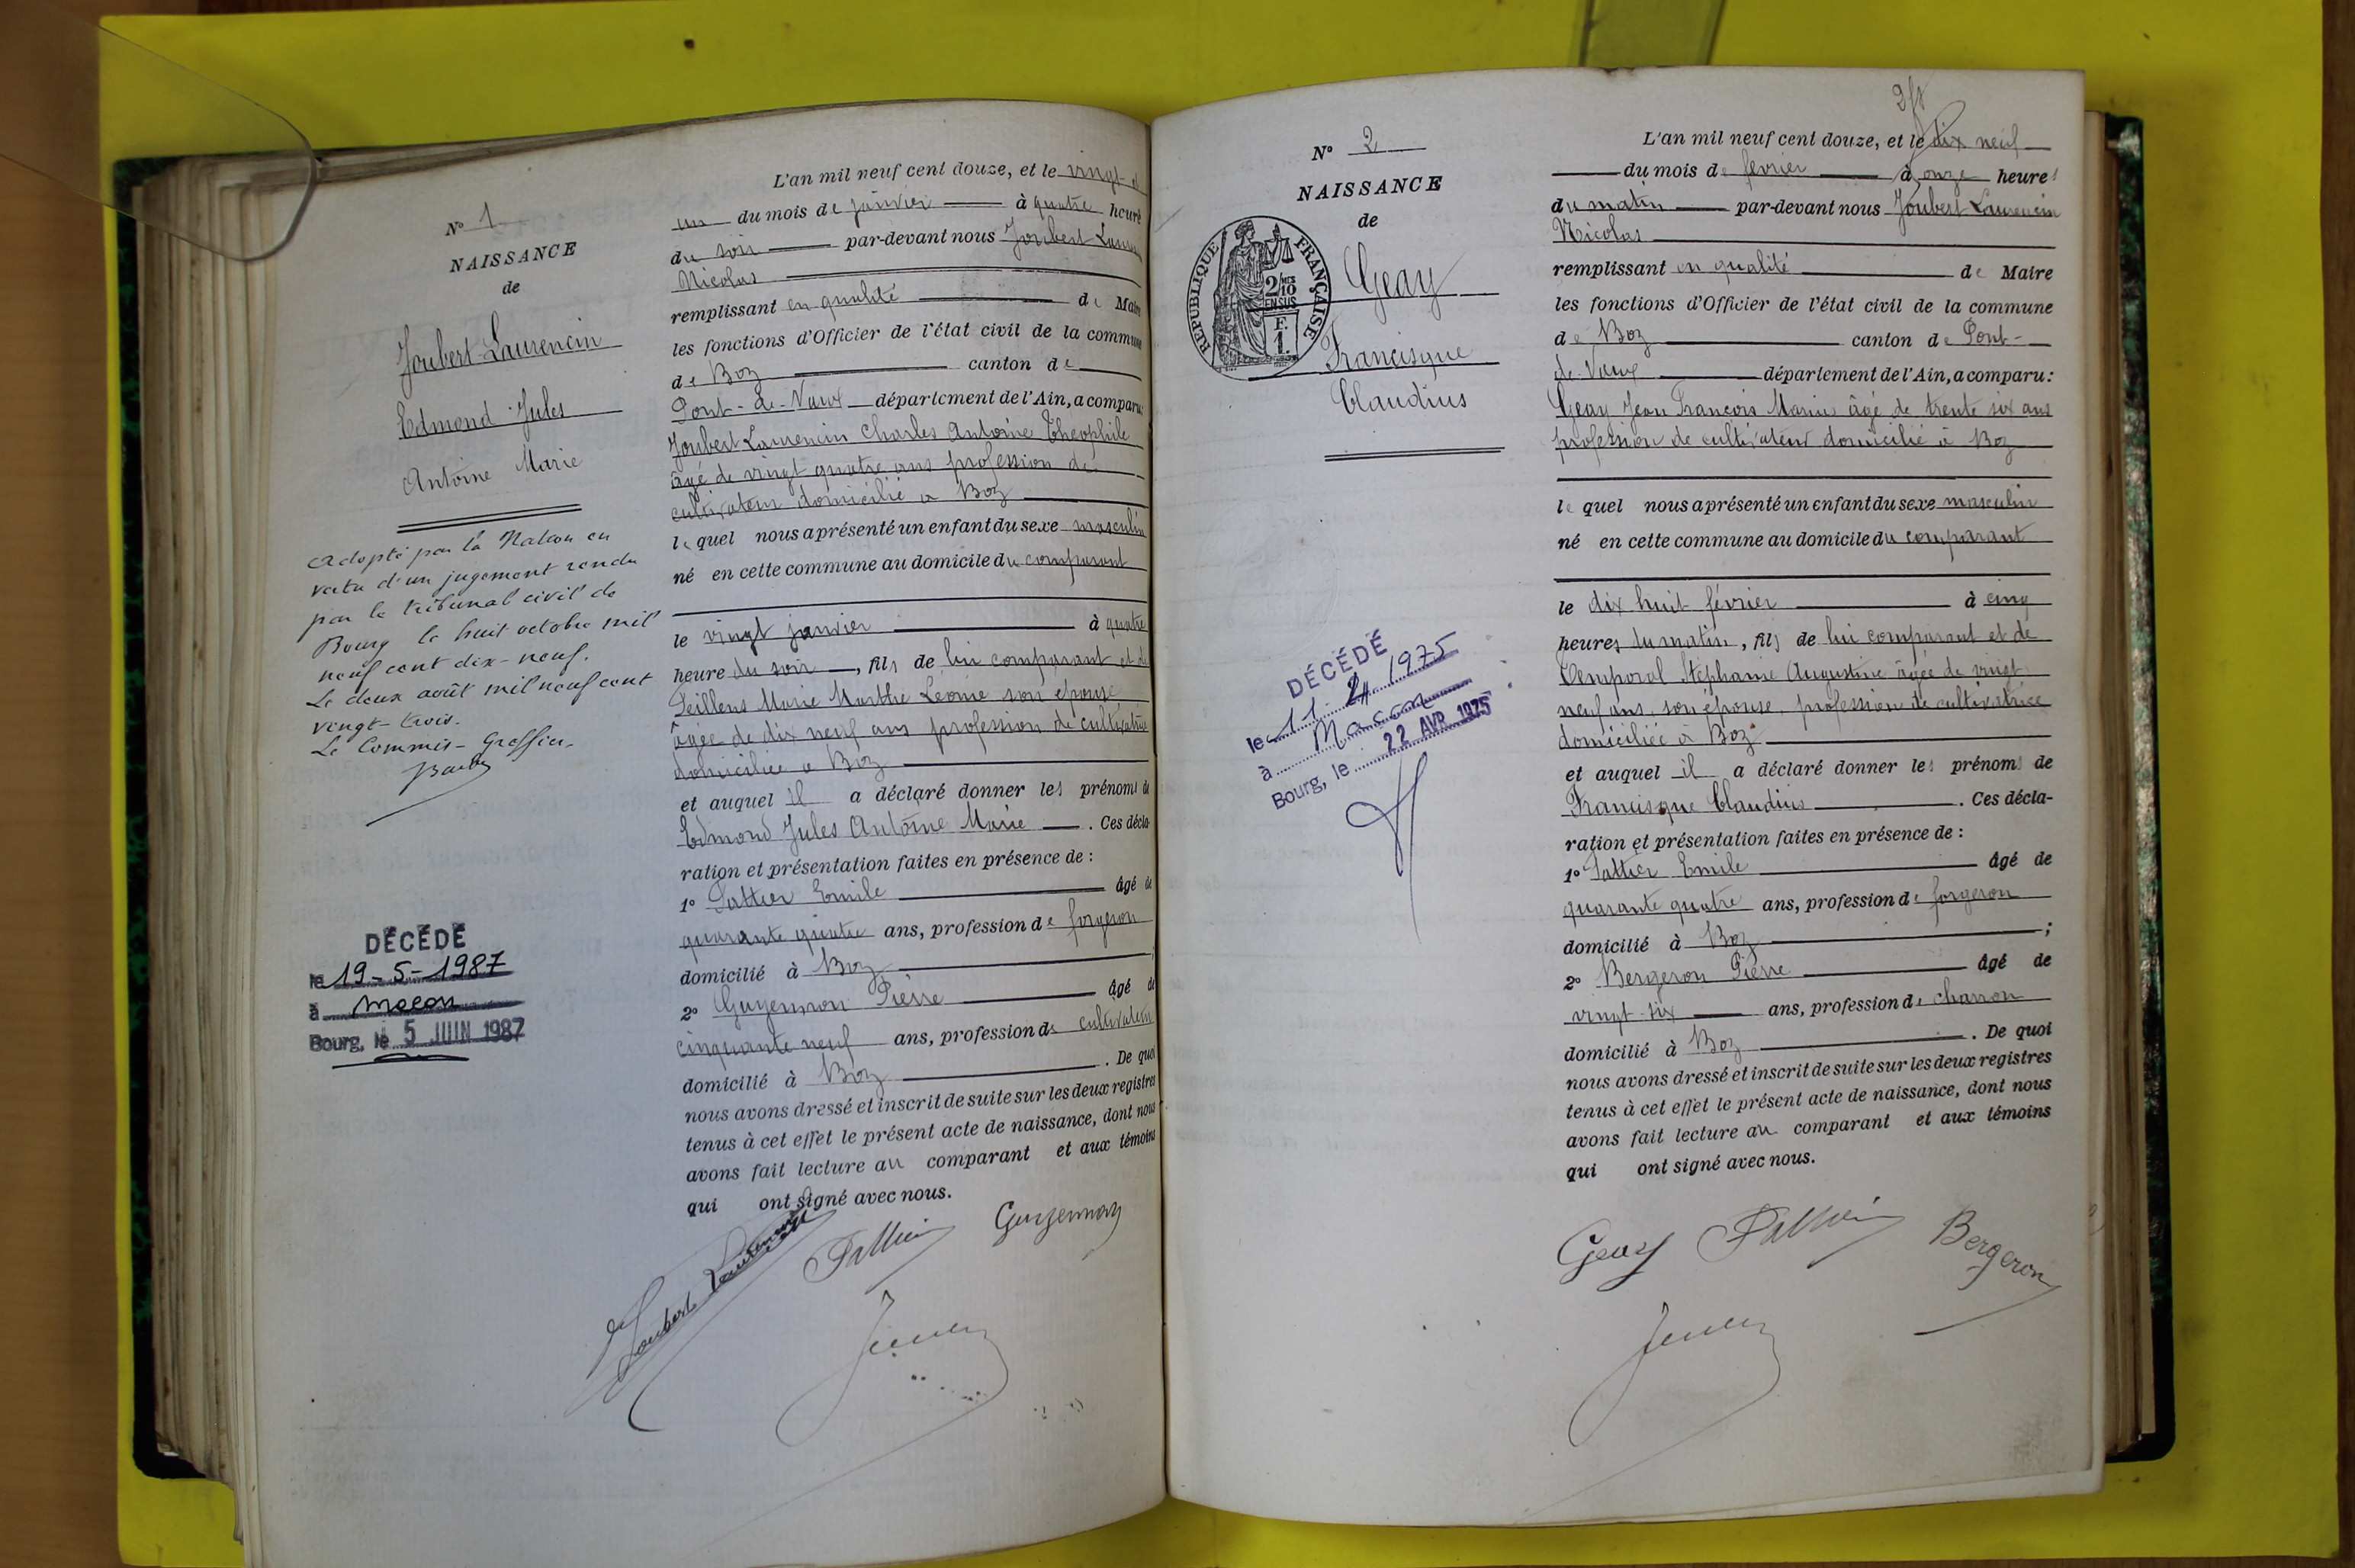 N° 1
NAISSANCE
de
Joubert-Laurencin
Edmond Jules
Antoine Marie
Adopté par la Nation en
vertu d'un jugement rendu
par le tribunal civil de
Bourg le huit octobre mil
neuf cent dix-neuf.
Le deux août mil neuf cent
vingt-trois.
Le Commis-Greffier,
DÉCÉDÉ
le 19-5-1987
à macon
Bourg, le 5 JUIN 1987
L'an mil neuf cent douze, et le vingt et
un du mois de janvier à quatre heure
du soir par-devant nous Joubert Lauren
Nicolas
remplissant en qualité de Maire
les fonctions d'Officier de l'état civil de la commune
de Boz canton de
Pont-de-Vaux département de l'Ain, a comparu:
Joubert Laurencin Charles Antoine Théophile
âgé de vingt quatre ans profession de
cultivateur domicilié à Boz
le quel nous a présenté un enfant du sexe masculin
né en cette commune au domicile du comparant
le vingt janvier à quatre
heure du soir, fils de lui comparant et de
Feillens Marie Marthe Léonie son épouse
âgée de dix neuf ans profession de cultivatrice
domiciliée à Boz
et auquel il a déclaré donner les prénoms de
Edmond Jules Antoine Marie. Ces décla-
ration et présentation faites en présence de :
1° Pattier Emile âgé de
quarante quatre ans, profession de forgeron
domicilié à Boz ;
2° Guyennon Pierre âgé de
cinquante neuf ans, profession de cultivateur
domicilié à Boz. De quoi
nous avons dressé et inscrit de suite sur les deux registres
tenus à cet effet le présent acte de naissance, dont nous
avons fait lecture au comparant et aux témoins
qui ont signé avec nous.
Joubert Laurencin Pattier Guyennon
N° 2
NAISSANCE
de
REPUBLIQUE FRANÇAISE
2/10
EN SUS
F.
1.
Geay
Francisque
Claudius
DÉCÉDÉ
le 11. 4. 1975
à Macon
Bourg, le 22 AVR 1975
L'an mil neuf cent douze, et le dix neuf
du mois de février à onze heures
du matin par-devant nous Joubert Laurencin
Nicolas
remplissant en qualité de Maire
les fonctions d'Officier de l'état civil de la commune
de Boz canton de Pont-
de-Vaux département de l'Ain, a comparu :
Geay Jean François Marius âgé de trente six ans
profession de cultivateur domicilié à Boz
le quel nous a présenté un enfant du sexe masculin
né en cette commune au domicile du comparant
le dix huit février à cinq
heures du matin, fils de lui comparant et de
Temporal Stéphanie Augustine âgée de vingt
neuf ans, son épouse, profession de cultivatrice
domiciliée à Boz
et auquel il a déclaré donner les prénoms de
Francisque Claudius. Ces décla-
ration et présentation faites en présence de :
1° Pattier Emile âgé de
quarante quatre ans, profession de forgeron
domicilié à Boz ;
2° Bergeron Pierre âgé de
vingt-six ans, profession de charron
domicilié à Boz. De quoi
nous avons dressé et inscrit de suite sur les deux registres
tenus à cet effet le présent acte de naissance, dont nous
avons fait lecture au comparant et aux témoins
qui ont signé avec nous.
Geay Pattier Bergeron